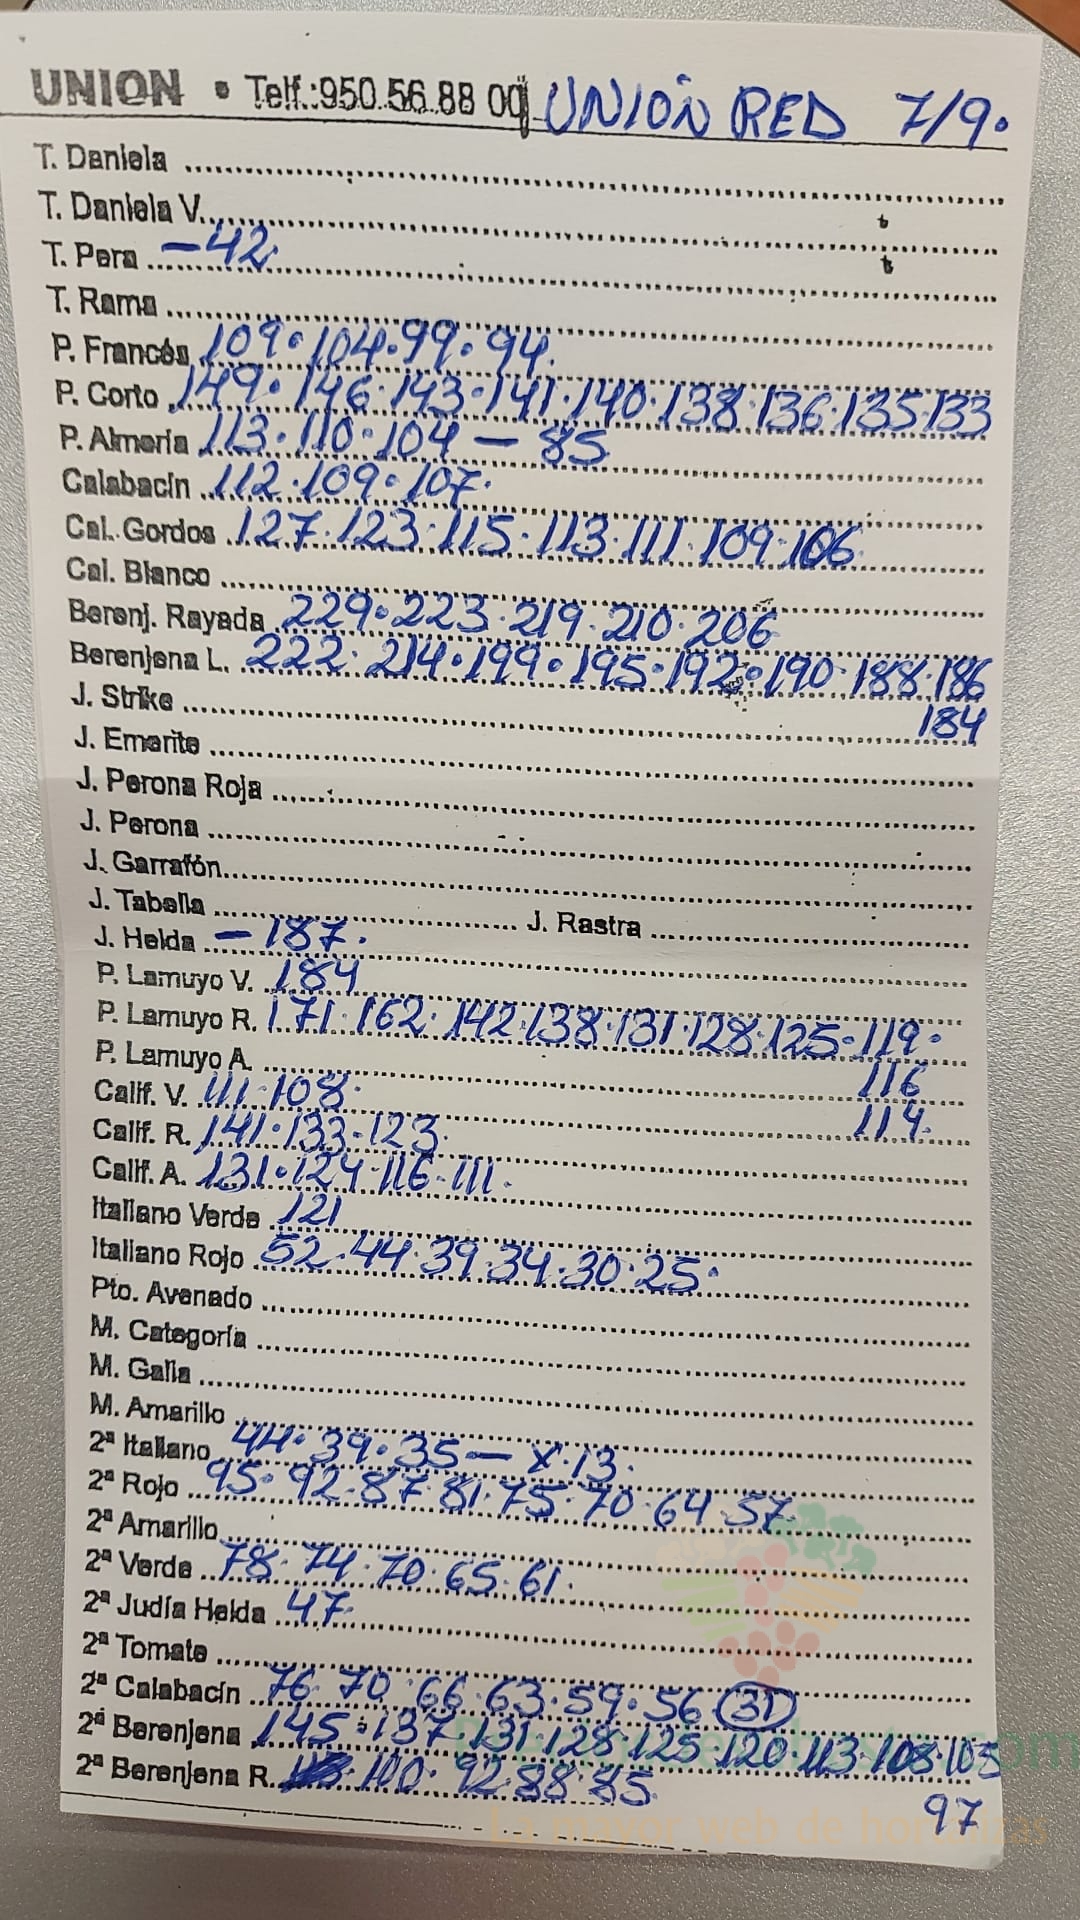 UNION • Telf.:950.56.88 00 UNION RED 7/9.
T. Daniela
T. Daniela V.
T. Pera - 42.
T. Rama
P. Francés 109 · 104 · 99 · 94.
P. Corto 149 · 146 · 143 · 141 · 140 · 138 · 136 · 135 · 133
P. Almería 113 · 110 · 104 - 85
Calabacín 112 · 109 · 107.
Cal. Gordos 127 · 123 · 115 · 113 · 111 · 109 · 106
Cal. Blanco
Berenj. Rayada 229 · 223 · 219 · 210 · 206
Berenjena L. 222 · 214 · 199 · 195 · 192 · 190 · 188 · 186
184
J. Strike
J. Emerite
J. Perona Roja
J. Perona
J. Garrafón
J. Tabella J. Rastra
J. Helda - 187.
P. Lamuyo V. 184
P. Lamuyo R. 171 · 162 · 142 · 138 · 131 · 128 · 125 · 119 ·
116
P. Lamuyo A.
114.
Calif. V. 111 · 108.
Calif. R. 141 · 133 · 123
Calif. A. 131 · 124 · 116 · 111.
Italiano Verde 121
Italiano Rojo 52 · 44 · 39 · 34 · 30 · 25 ·
Pto. Avenado
M. Categoría
M. Galia
M. Amarillo
2ª Italiano 44 · 39 · 35 - x · 13.
2ª Rojo 95 · 92 · 87 · 81 · 75 · 70 · 64 · 57
2ª Amarillo
2ª Verde 78 · 74 · 70 · 65 · 61.
2ª Judía Helda 47
2ª Tomate
2ª Calabacín 76 · 70 · 66 · 63 · 59 · 56 (31)
2ª Berenjena 145 · 137 · 131 · 128 · 125 · 120 · 113 · 108 · 103
2ª Berenjena R. 100 · 92 · 88 · 85
97
La mayor web de hortalizas